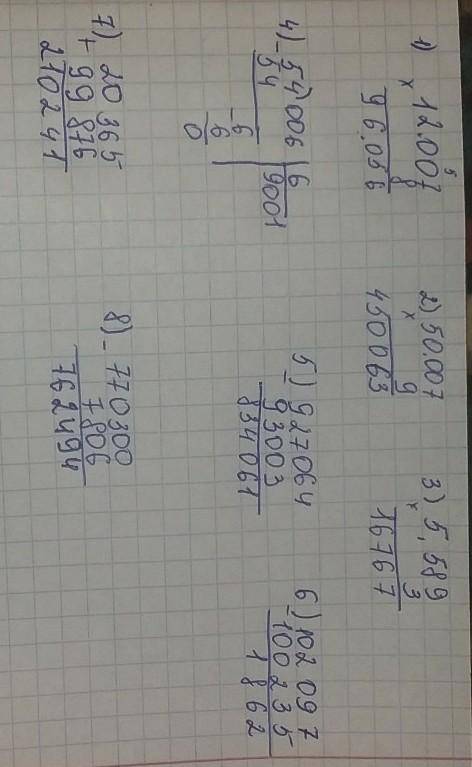 1) 12.007
5
× 8
96.056
2) 50.007
× 9
450063
3) 5,589
× 3
16767
4) - 54'006 | 6
54 9001
- 6
6
0
5) - 927064
93003
834061
6) - 102 097
100235
1862
7) 20 365
+ 99 876
210241
8) - 770300
7806
762494